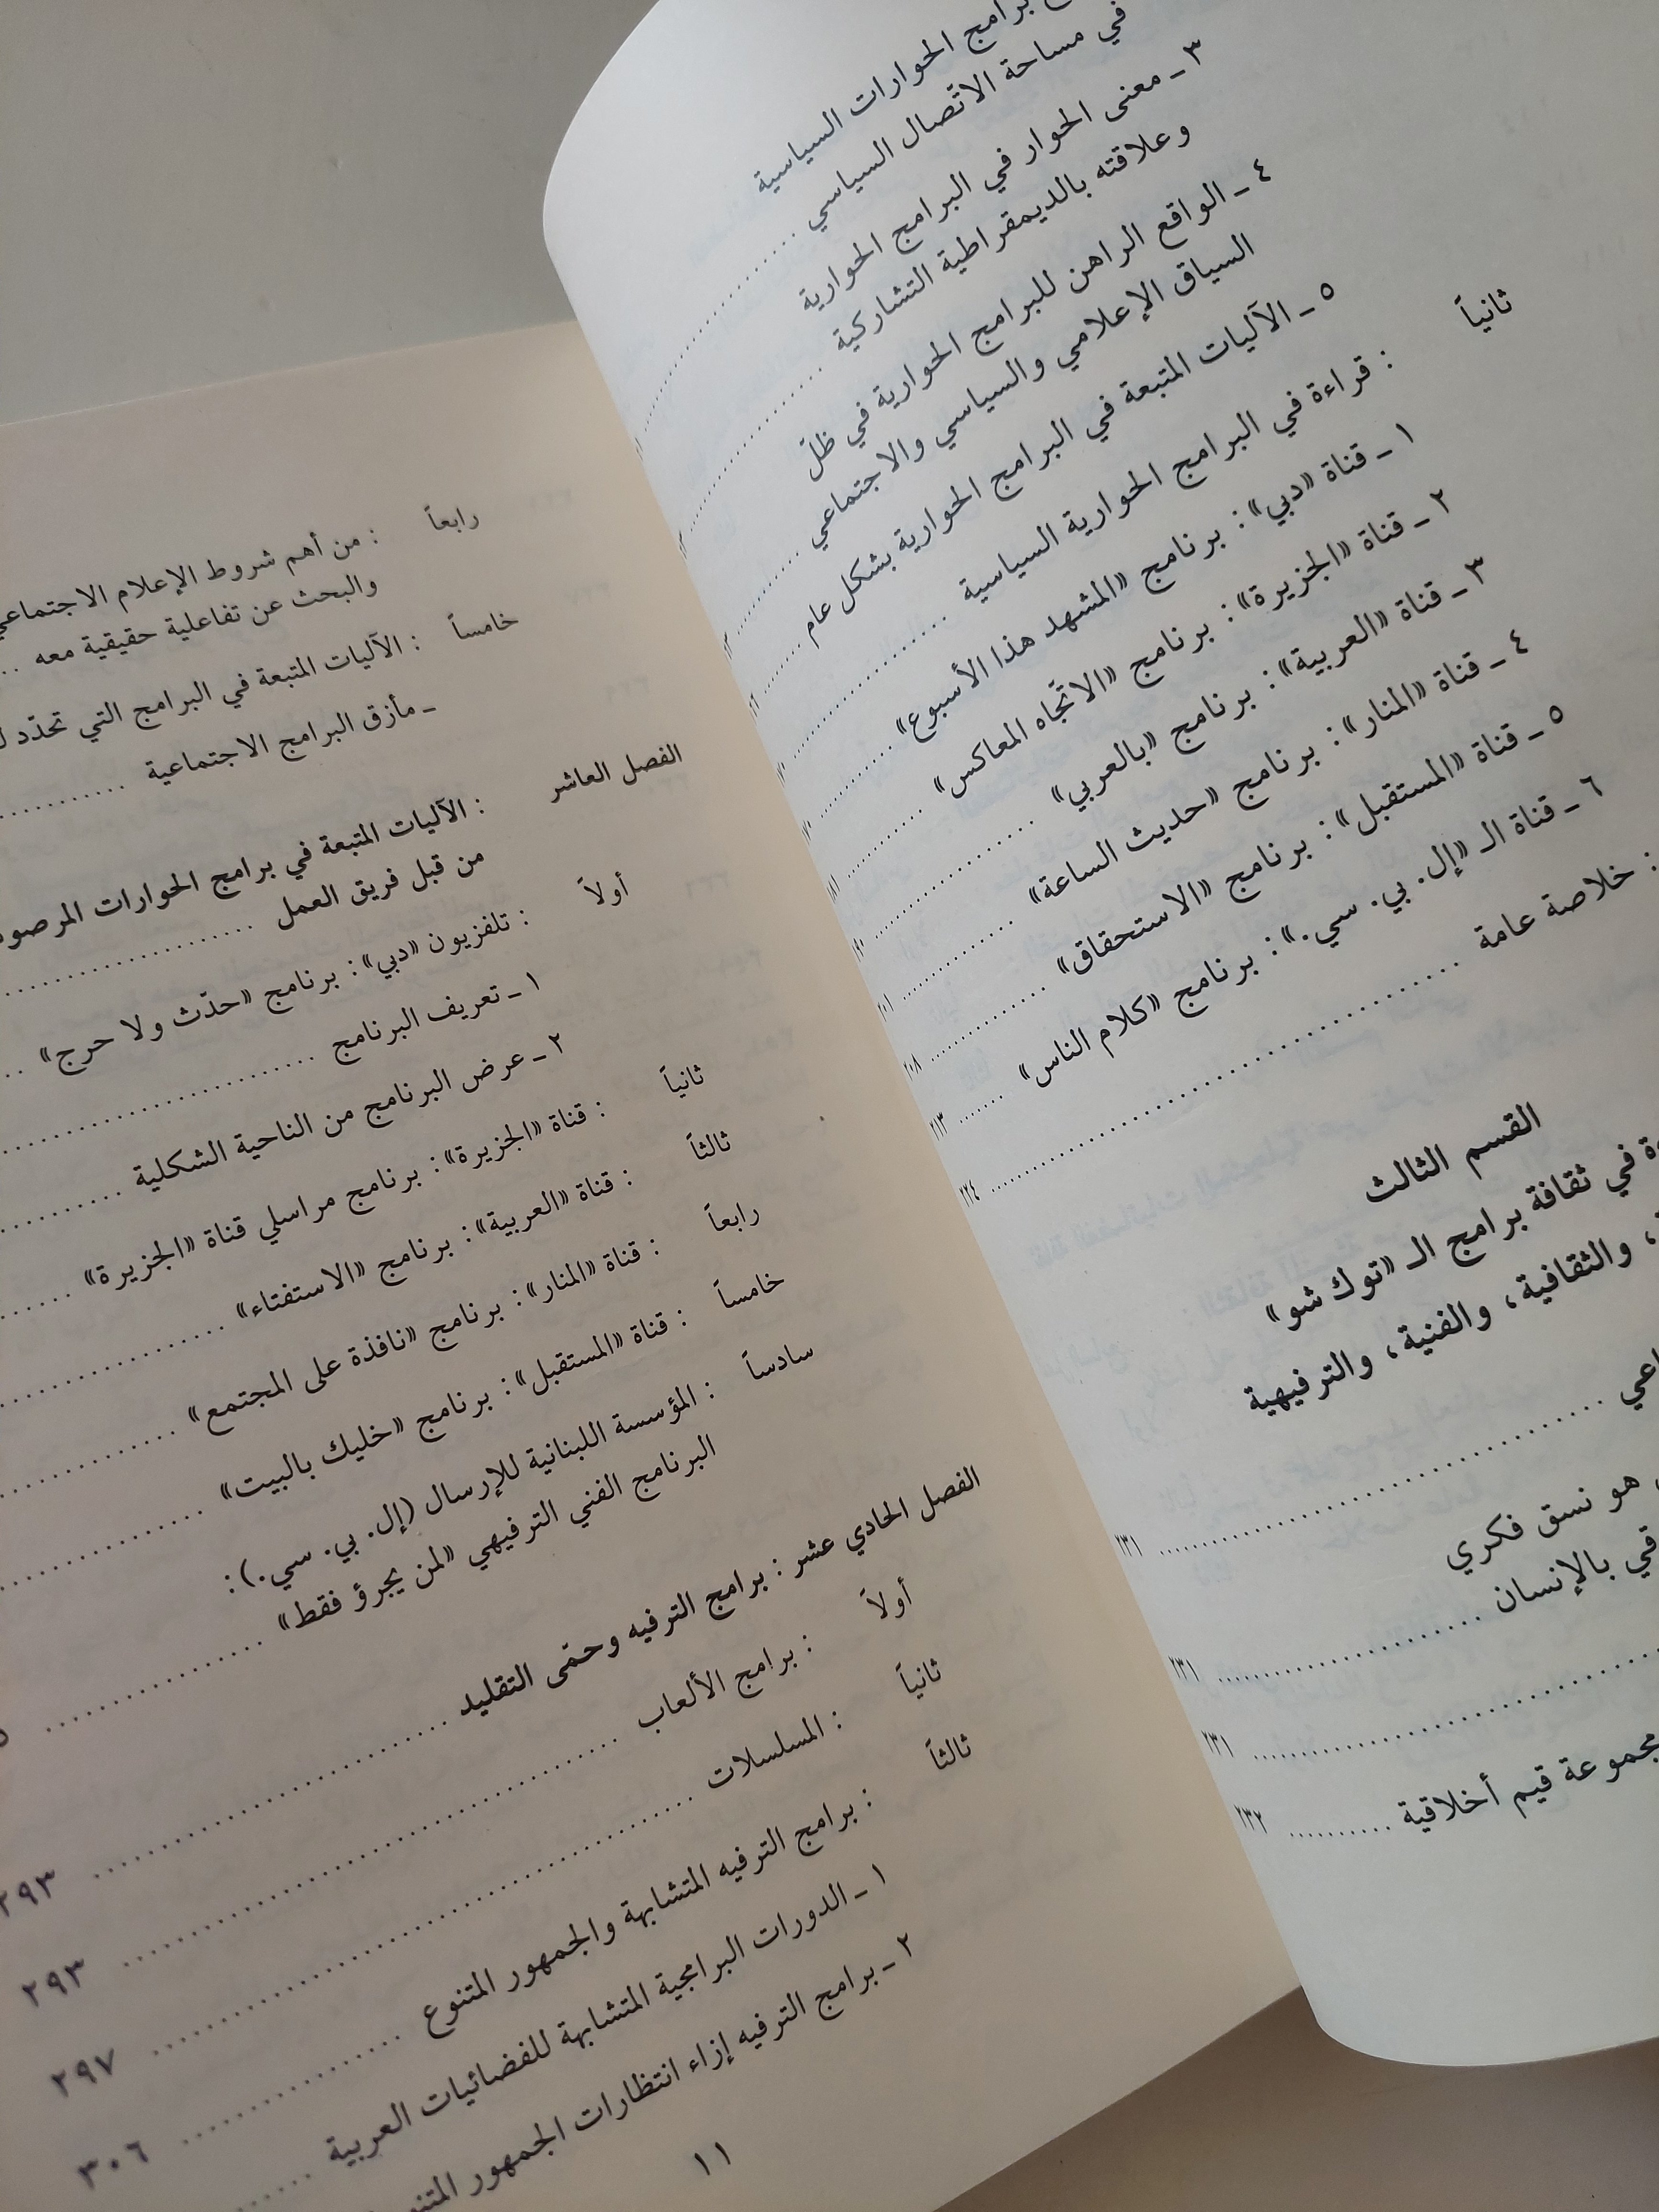 برامج الحوارات السياسية
في مساحة الاتّصال السياسي ..........
٣ ـ معنى الحوار في البرامج الحوارية
وعلاقته بالديمقراطية التشاركية ..........
٤ ـ الواقع الراهن للبرامج الحوارية في ظلّ
السياق الإعلامي والسياسي والاجتماعي ..........
٥ ـ الآليات المتبعة في البرامج الحوارية بشكل عام ..........
ثانياً : قراءة في البرامج الحوارية السياسية ..........
١ ـ قناة «دبي»: برنامج «المشهد هذا الأسبوع» ..........
٢ ـ قناة «الجزيرة»: برنامج «الاتّجاه المعاكس» ..........
٣ ـ قناة «العربية»: برنامج «بالعربي» ..........
٤ ـ قناة «المنار»: برنامج «حديث الساعة» .......... ٢٠١
٥ ـ قناة «المستقبل»: برنامج «الاستحقاق» .......... ٢٠٨
٦ ـ قناة الـ «إل. بي. سي.»: برنامج «كلام الناس» .......... ٢١٣
: خلاصة عامة .......... ٢٢٤
القسم الثالث
في ثقافة برامج الـ «توك شو»
، والثقافية، والفنية، والترفيهية
.......... ٢٣١
هو نسق فكري
بالإنسان .......... ٢٣١
.......... ٢٣١
مجموعة قيم أخلاقية .......... ٢٣٢
رابعاً : من أهم شروط الإعلام الاجتماعي
والبحث عن تفاعلية حقيقية معه ..
خامساً : الآليات المتبعة في البرامج التي تحدّد
ـ مأزق البرامج الاجتماعية ..........
الفصل العاشر : الآليات المتبعة في برامج الحوارات
من قبل فريق العمل ..........
أولاً : تلفزيون «دبي»: برنامج «حدّث ولا حرج» ..
١ ـ تعريف البرنامج ..........
٢ ـ عرض البرنامج من الناحية الشكلية ..........
ثانياً : قناة «الجزيرة»: برنامج مراسلي قناة «الجزيرة» ..........
ثالثاً : قناة «العربية»: برنامج «الاستفتاء» ..........
رابعاً : قناة «المنار»: برنامج «نافذة على المجتمع» ..........
خامساً : قناة «المستقبل»: برنامج «خليك بالبيت» ..........
سادساً : المؤسسة اللبنانية للإرسال (إل. بي. سي.):
البرنامج الفني الترفيهي «لمن يجرؤ فقط» ..........
الفصل الحادي عشر : برامج الترفيه وحمّى التقليد .......... ٢٩٣
أولاً : برامج الألعاب .......... ٢٩٣
ثانياً : المسلسلات .......... ٢٩٧
ثالثاً : برامج الترفيه المتشابهة والجمهور المتنوع .......... ٣٠٦
١ ـ الدورات البرامجية المتشابهة للفضائيات العربية ..........
٢ ـ برامج الترفيه إزاء انتظارات الجمهور
١١